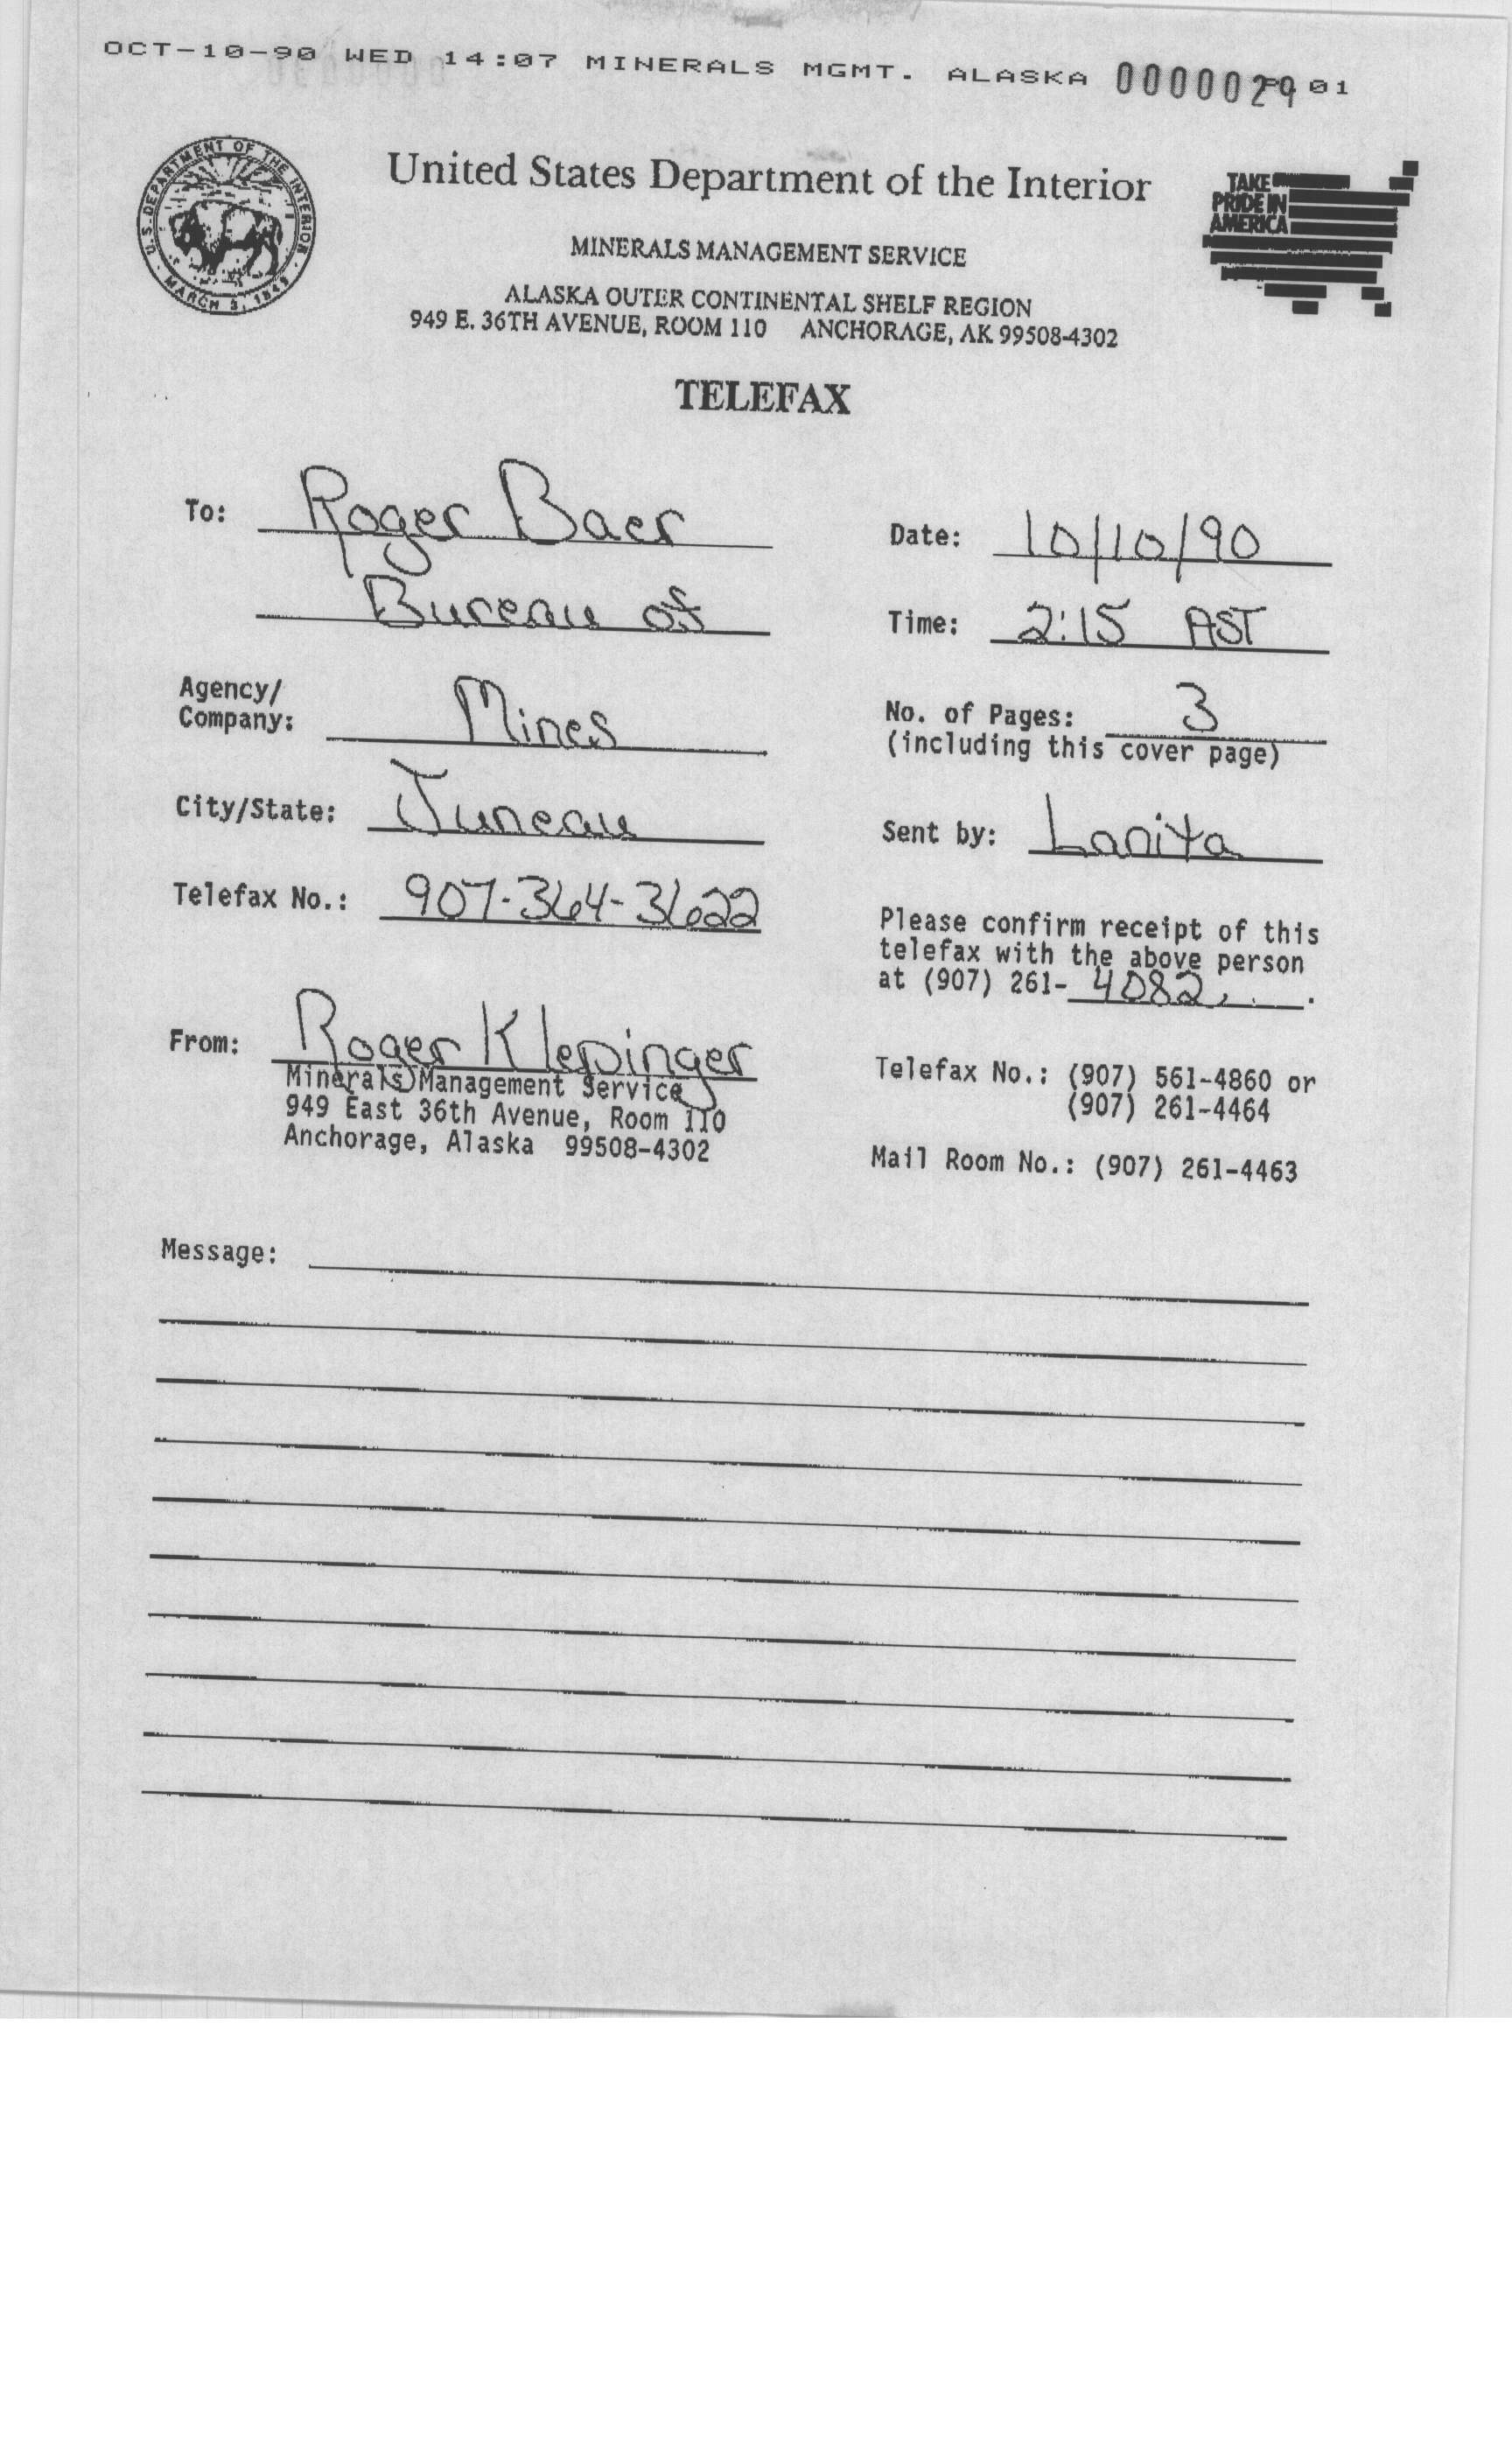 OCT-10-90 WED 14:07 MINERALS MGMT. ALASKA 00000029 01
U.S. DEPARTMENT OF THE INTERIOR
MARCH 3, 1849
United States Department of the Interior
TAKE
PRIDE IN
AMERICA
MINERALS MANAGEMENT SERVICE
ALASKA OUTER CONTINENTAL SHELF REGION
949 E. 36TH AVENUE, ROOM 110 ANCHORAGE, AK 99508-4302
TELEFAX
To: Roger Baer
Bureau of
Agency/
Company: Mines
City/State: Juneau
Telefax No.: 907-364-3622
From: Roger Klepinger
Minerals Management Service
949 East 36th Avenue, Room 110
Anchorage, Alaska 99508-4302
Date: 10/10/90
Time: 2:15 AST
No. of Pages: 3
(including this cover page)
Sent by: Lanita
Please confirm receipt of this
telefax with the above person
at (907) 261-4082.
Telefax No.: (907) 561-4860 or
(907) 261-4464
Mail Room No.: (907) 261-4463
Message: